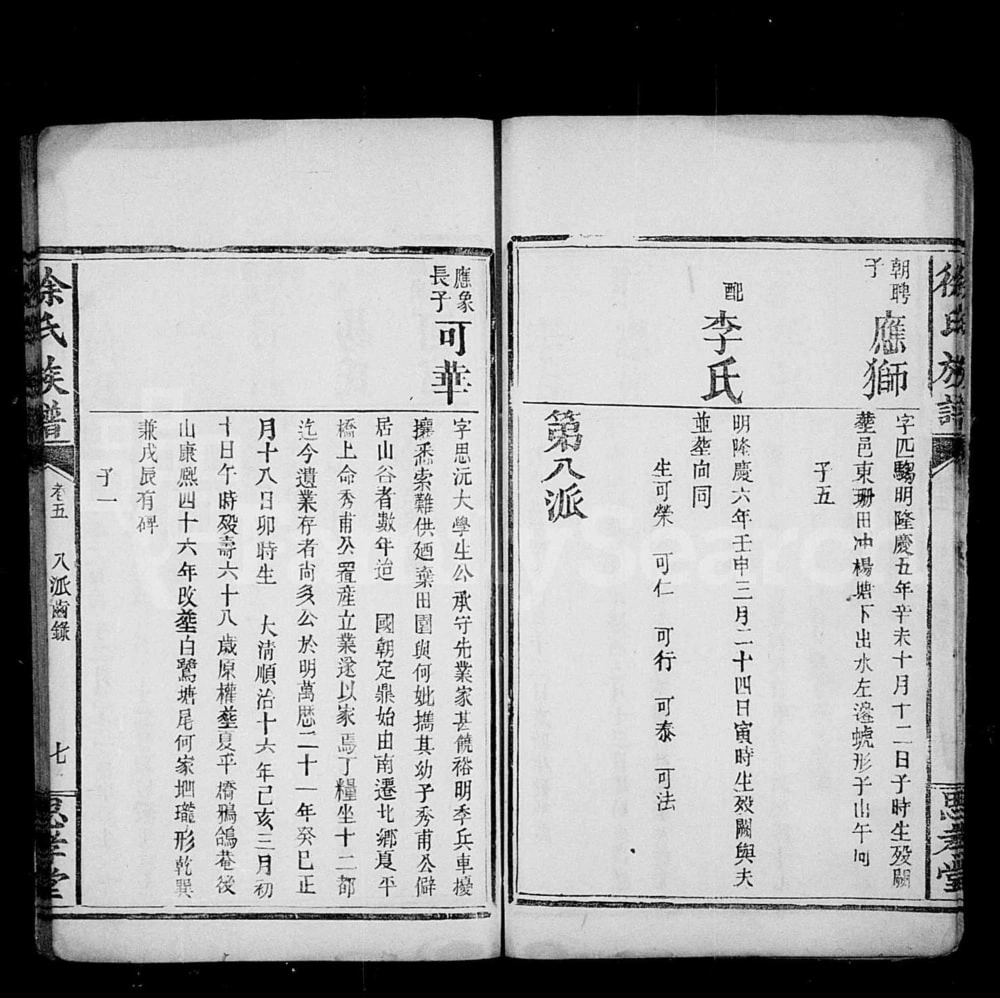 徐氏族譜
思孝堂
朝聘子
應獅
字匹騶明隆慶五年辛未十月十二日子時生歿闕
塟邑東珊田冲楊塘下出水左邉蜣形子山午向
子五
配
李氏
明隆慶六年壬申三月二十四日寅時生歿闕與夫
並塟向同
生可榮 可仁 可行 可泰 可法
第八派
應象長子
可華
字思沅大學生公承守先業家甚饒裕明季兵車擾
攘悉索難供廼棄田園與何妣擕其幼子秀甫公僻
居山谷者數年迨 國朝定鼎始由南遷北鄉夏平
橋上命秀甫公置産立業遂以家焉丁糧坐十二都
迄今遺業存者尚多公於明萬厯二十一年癸巳正
月十八日卯時生 大清順治十六年己亥三月初
十日午時歿壽六十八歲原權塟夏平橋鴉鴿菴後
山康熙四十六年改塟白鷺塘尾何家形乾巽
兼戌辰有碑
子一
徐氏族譜
卷五 八派齒錄 七
思孝堂
FamilySearch